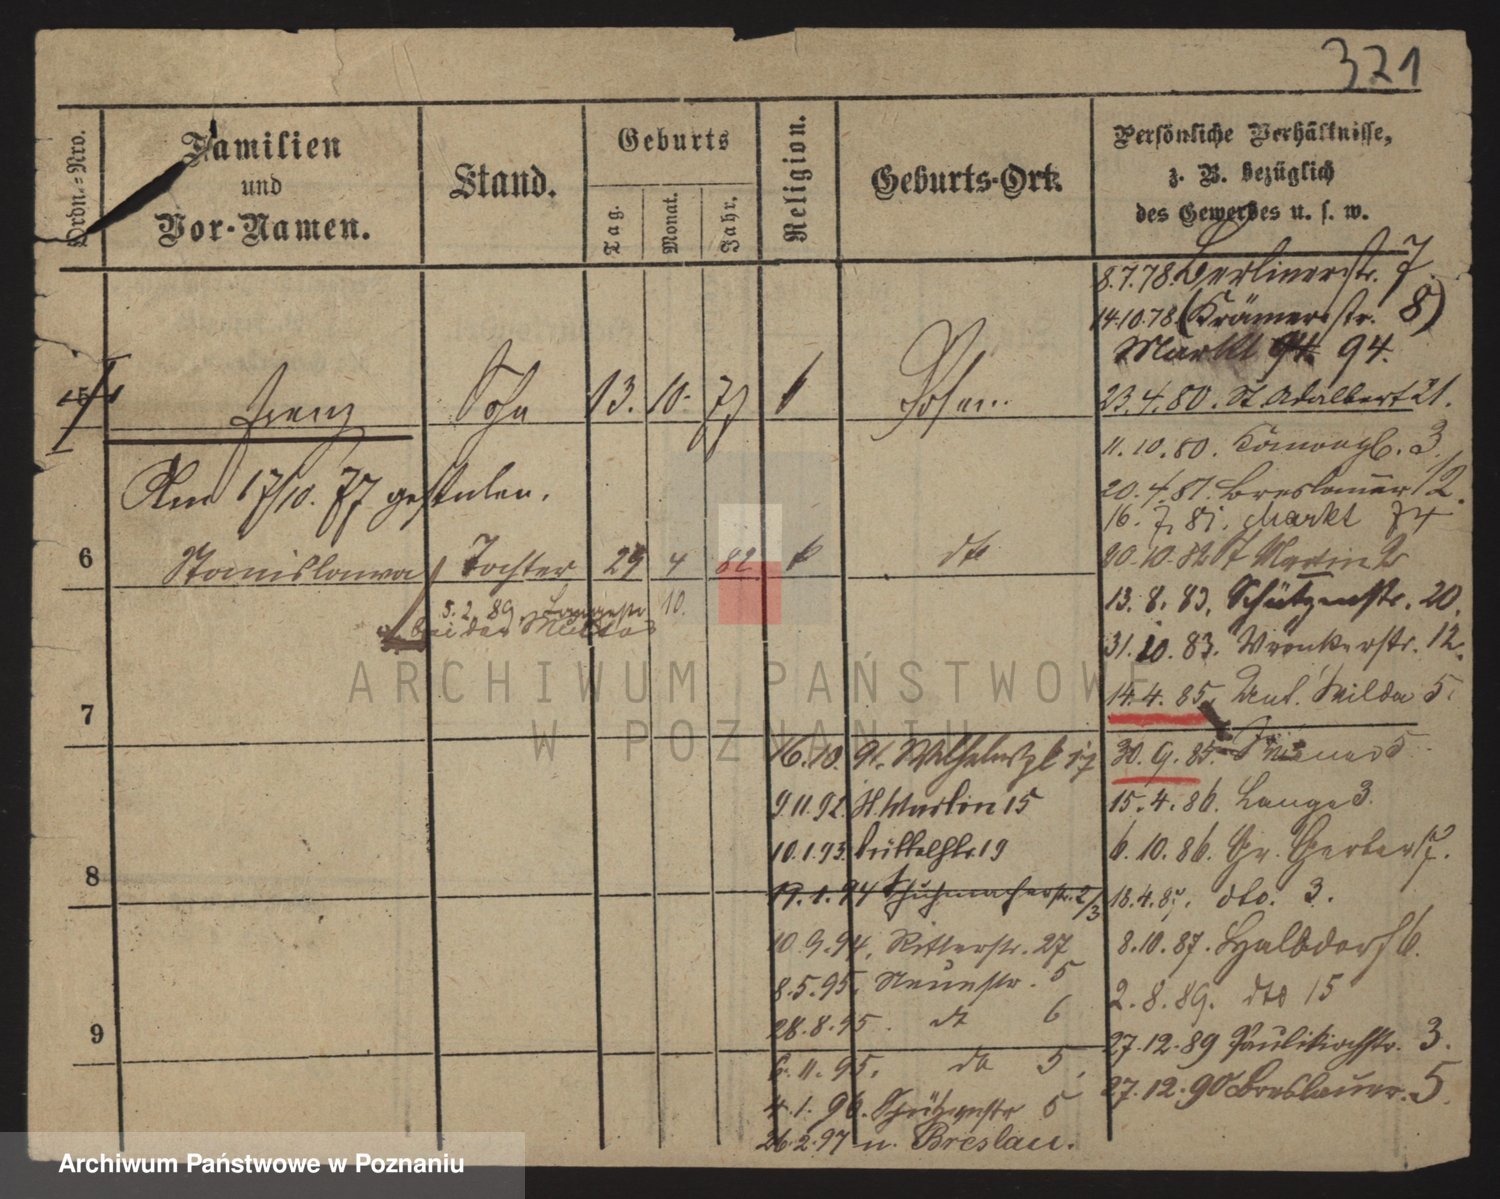 321
Ordn.-Nro.
Familien
und
Vor-Namen.
Stand.
Geburts
Tag.
Monat.
Jahr.
Religion.
Geburts-Ort.
Persönliche Verhältnisse,
z. B. bezüglich
des Gewerbes u. s. w.
8.7.78. Berlinerstr. 7.
14.10.78 (Krämerstr. 8)
Markt 94. 94.
5
Franz Sohn 13. 10. 77 k Posen
23.4.80. St Adalbert 21.
11.10.80. 3.
Am 17/10. 77 gestorben.
20.4.81. Breslauer 12.
16. 7. 81. Markt 74
6
Stanislawa Tochter 29 4 82 k dto
20.10.82 St Martin 2
5.2.89. Langestr. 10.
bei der Mutter
13. 8. 83. Schützenstr. 20.
31.10.83. Wronkerstr. 12.
14.4.85. Unt. Wilda 5.
7
16.10.91. Wilhelmspl 17
30.9.85. 5.
9.11.92. St. Martin 15
15.4.86. Lange 3.
10.1.93. Büttelstr. 19
6.10.86. Gr. Gerberst 7.
8
19.1.94 Schuhmacherstr. 2/3
18.4.87. dto. 3.
10.9.94. Ritterstr. 27
8.10.87. Halbdorf 6.
8.5.95. Neuestr. 5
2.8.89. dto 15
9
28.8.95. dt 6
27.12.89 Paulikirchstr. 3.
6.11.95. dto 5.
27.12.90 Breslauer. 5.
4.1.96. Schützenstr 5
26.2.97 n. Breslau.
ARCHIWUM PAŃSTWOWE
W POZNANIU
Archiwum Państwowe w Poznaniu